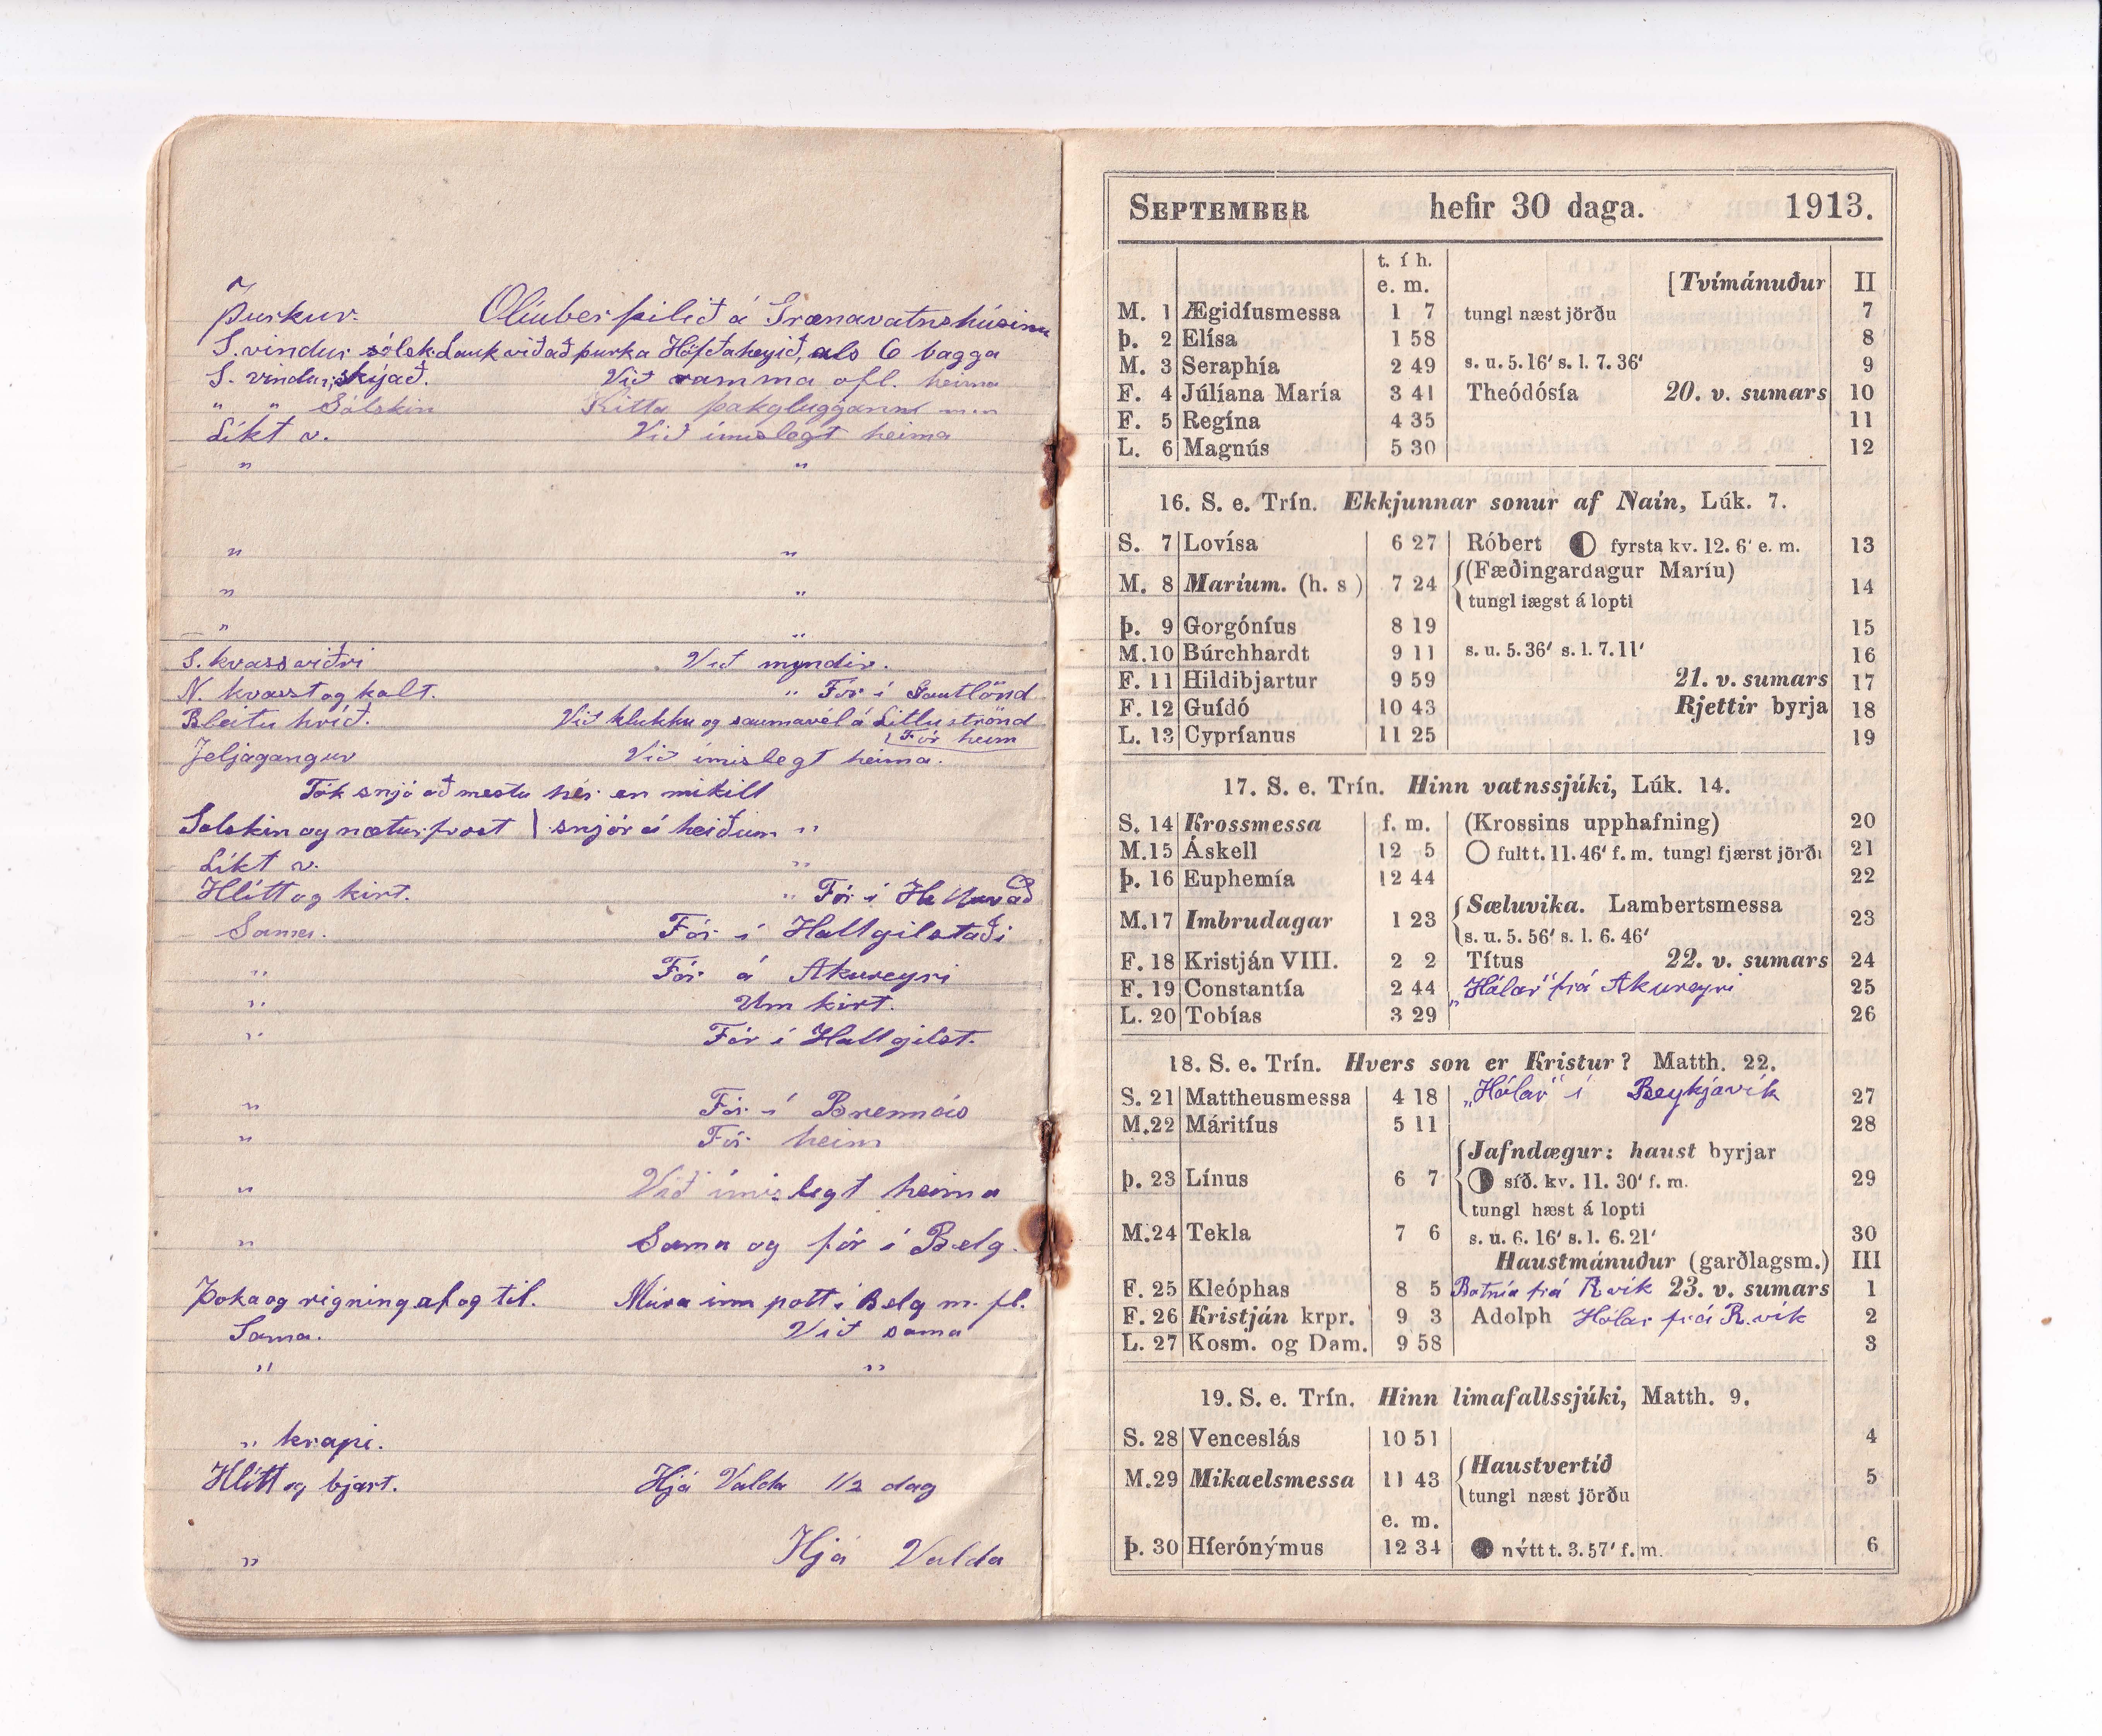 Þurkur. Olíuber þilið á Grænavatnshúsinu
S. vindur sólsk. Lauk við að þurka Höfðaheyið, als 6 bagga
S. vindur, skýað. Við ramma ofl. heima
" " Sólskin Kitta þakgluggann
Líkt v. Við ímislegt heima
" "
" "
" "
" "
S. kvassviðri Við myndir.
N. kvasst og kalt. " Fór í Gautlönd
Bleitu hríð. Við klukku og saumavél á Litluströnd
Fór heim
Jeljagangur Við ímislegt heima.
Tók snjó að mestu hér en mikill
Solskin og næturfrost | snjór á heiðum "
Líkt v. "
Hlítt og kirt. " Fór í Helluvað
Sama. Fór í Hallgilstaði
" Fór á Akureyri
" Um kirt.
" Fór í Hallgilst.
" Fór í Brennás
" Fór heim
" Við ímislegt heima
" Sama og fór í Belg.
Þoka og rigning af og til. Múra inn pott í Belg m. fl.
Sama. Við sama
" "
" krapi.
Hlítt og bjart. Hjá Valda 1/2 dag
" Hjá Valda
SEPTEMBER hefir 30 daga. 1913.
t. í h.
e. m. [Tvímánuður II
M. 1 Ægidíusmessa 1 7 tungl næst jörðu 7
Þ. 2 Elísa 1 58 8
M. 3 Seraphía 2 49 s. u. 5.16' s. l. 7.36' 9
F. 4 Júlíana María 3 41 Theódósía 20. v. sumars 10
F. 5 Regína 4 35 11
L. 6 Magnús 5 30 12
16. S. e. Trín. Ekkjunnar sonur af Nain, Lúk. 7.
S. 7 Lovísa 6 27 Róbert fyrsta kv. 12. 6' e. m. 13
M. 8 Maríum. (h. s) 7 24 (Fæðingardagur Maríu) 14
tungl lægst á lopti
Þ. 9 Gorgóníus 8 19 15
M. 10 Búrchhardt 9 11 s. u. 5.36' s. l. 7.11' 16
F. 11 Hildibjartur 9 59 21. v. sumars 17
F. 12 Guídó 10 43 Rjettir byrja 18
L. 13 Cypríanus 11 25 19
17. S. e. Trín. Hinn vatnssjúki, Lúk. 14.
S. 14 Krossmessa f. m. (Krossins upphafning) 20
M. 15 Áskell 12 5 fult t. 11.46' f. m. tungl fjærst jörðu 21
Þ. 16 Euphemía 12 44 22
M. 17 Imbrudagar 1 23 Sæluvika. Lambertsmessa 23
s. u. 5. 56' s. l. 6. 46'
F. 18 Kristján VIII. 2 2 Títus 22. v. sumars 24
F. 19 Constantía 2 44 „Hólar" frá Akureyri 25
L. 20 Tobías 3 29 26
18. S. e. Trín. Hvers son er Kristur? Matth. 22.
S. 21 Mattheusmessa 4 18 „Hólar" í Reykjavík 27
M. 22 Máritíus 5 11 28
Jafndægur: haust byrjar
Þ. 23 Línus 6 7 síð. kv. 11. 30' f. m. 29
tungl hæst á lopti
M. 24 Tekla 7 6 s. u. 6. 16' s. l. 6. 21' 30
Haustmánuður (garðlagsm.) III
F. 25 Kleóphas 8 5 Botnía frá Rvík 23. v. sumars 1
F. 26 Kristján krpr. 9 3 Adolph Hólar frá R.vík 2
L. 27 Kosm. og Dam. 9 58 3
19. S. e. Trín. Hinn limafallssjúki, Matth. 9.
S. 28 Venceslás 10 51 4
M. 29 Mikaelsmessa 11 43 Haustvertíð 5
tungl næst jörðu
e. m.
Þ. 30 Híerónýmus 12 34 nýtt t. 3.57' f. m. 6